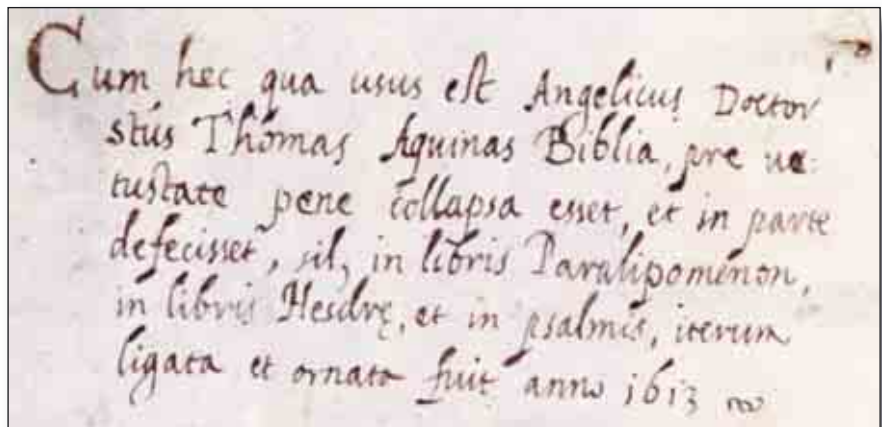 Cum hec qua usus est Angelicus Doctor
stus Thomas Aquinas Biblia, pre ue:
tustate pene collapsa esset, et in parte
defecisset, sil, in libris Paralipomenon,
in libris Hesdrę, et in psalmis, iterum
ligata et ornata fuit anno 1613